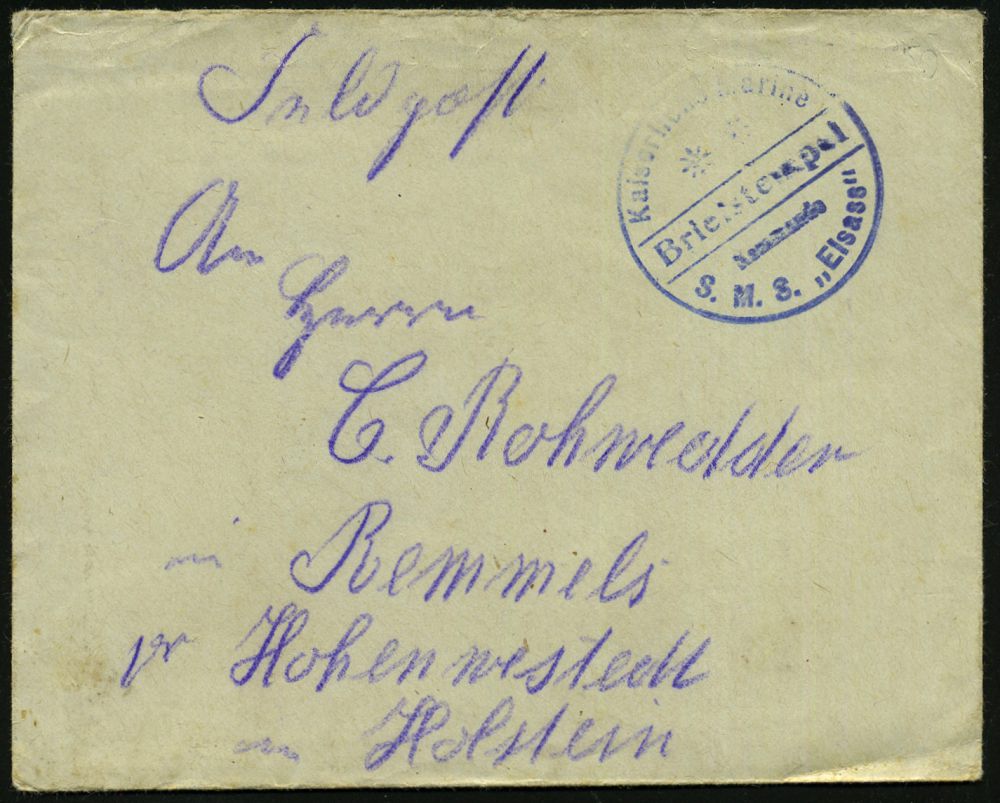 Feldpost
Kaiserliche Marine
Briefstempel
Kommando
S. M. S. „Elsass"
An
Herrn
C. Rohwedder
in Remmels
pr Hohenwestedt
in Holstein